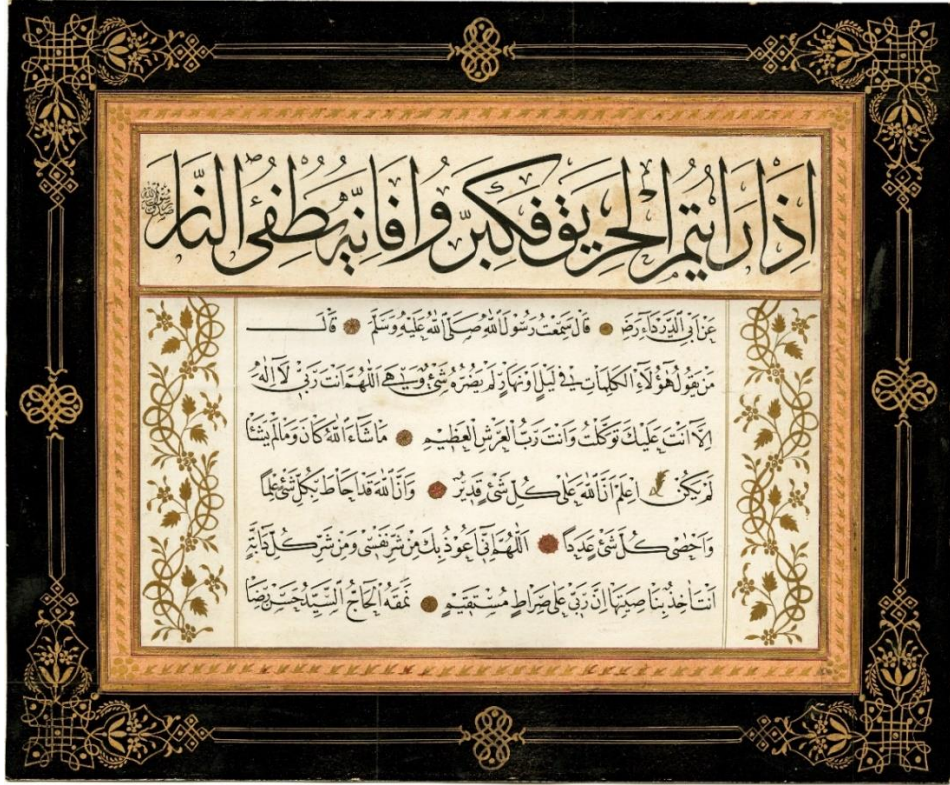 اِذَا رَاَيْتُمُ الْحَرِيقَ فَكَبِّرُوا فَاِنَّهُ يُطْفِئُ النَّارَ
صدق رسول الله
عَنْ اَبِي الدَّرْدَاءِ رض قَالَ سَمِعْتُ رَسُولَ اللهِ صَلَّى اللهُ عَلَيْهِ وَسَلَّمَ قَالَ
مَنْ يَقُولُ هٰؤُلَاءِ الْكَلِمَاتِ فِي لَيْلٍ اَوْ نَهَارٍ لَمْ يَضُرَّهُ شَيْءٌ وَهِيَ اَللّٰهُمَّ اَنْتَ رَبِّي لَا اِلٰهَ
اِلَّا اَنْتَ عَلَيْكَ تَوَكَّلْتُ وَاَنْتَ رَبُّ الْعَرْشِ الْعَظِيمِ مَا شَاءَ اللهُ كَانَ وَمَا لَمْ يَشَأْ
لَمْ يَكُنْ اِعْلَمْ اَنَّ اللهَ عَلٰى كُلِّ شَيْءٍ قَدِيرٌ وَاَنَّ اللهَ قَدْ اَحَاطَ بِكُلِّ شَيْءٍ عِلْمًا
وَاَحْصٰى كُلَّ شَيْءٍ عَدَدًا اَللّٰهُمَّ اِنِّي اَعُوذُ بِكَ مِنْ شَرِّ نَفْسِي وَمِنْ شَرِّ كُلِّ دَابَّةٍ
اَنْتَ اٰخِذٌ بِنَاصِيَتِهَا اِنَّ رَبِّي عَلٰى صِرَاطٍ مُسْتَقِيمٍ نَمَقَهُ الْحَاجُّ السَّيِّدُ حَسَنْ رِضَا